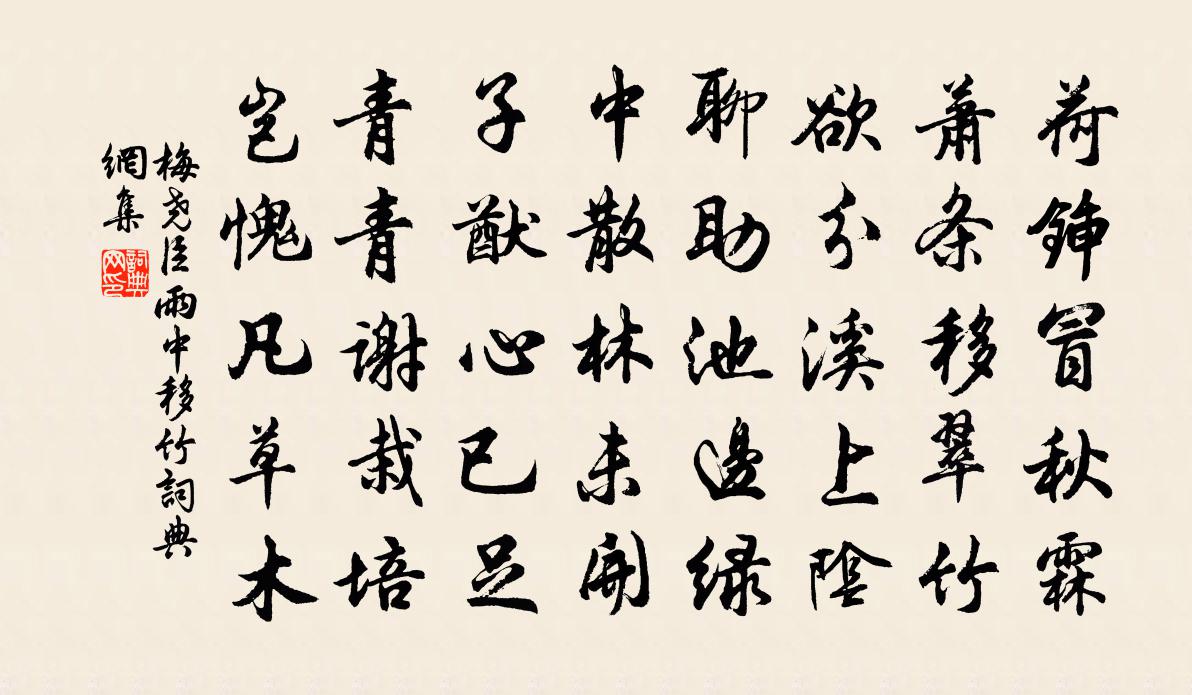 荷鍤冒秋霖
蕭条移翠竹
欲分溪上陰
聊助池邊绿
中散林未開
子猷心已足
青青谢栽培
岂愧凡草木
梅尧臣雨中移竹詞典
網集
詞典
网印